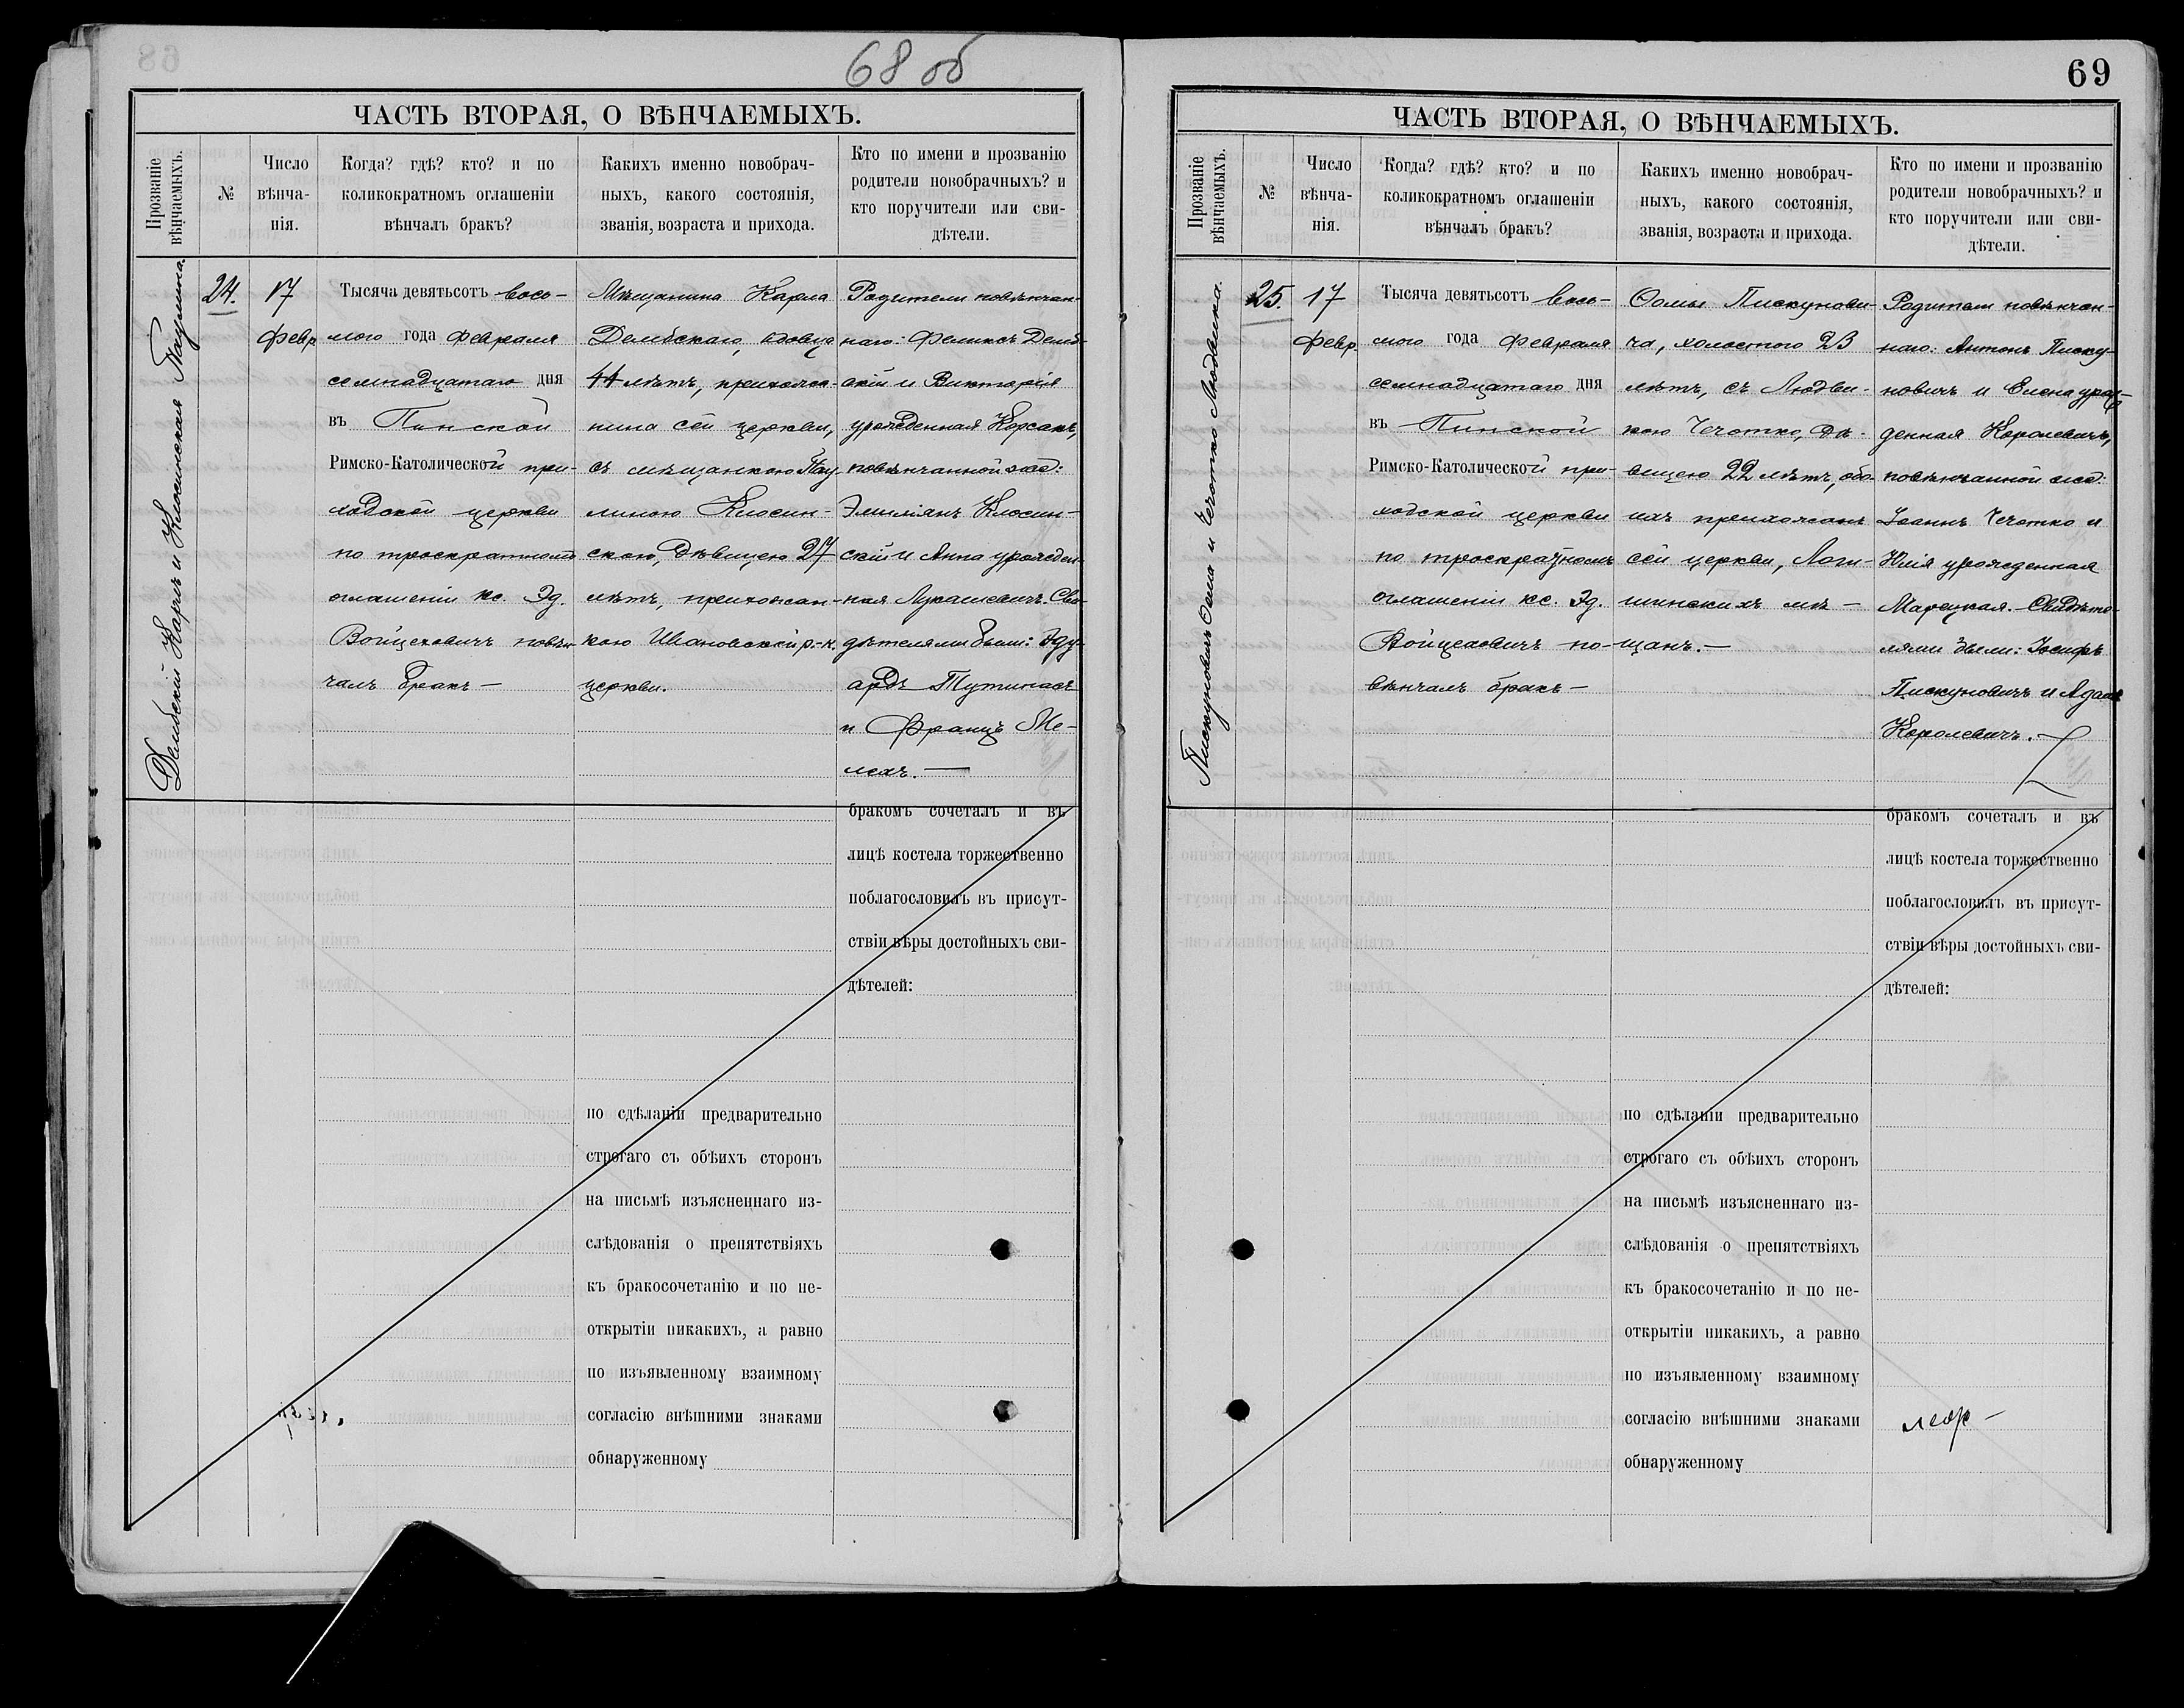 68 об
ЧАСТЬ ВТОРАЯ, О ВѢНЧАЕМЫХЪ.
Прозваніе
вѣнчаемыхъ.
№
Число
вѣнча-
нія.
Когда? гдѣ? кто? и по
коликократномъ оглашеніи
вѣнчалъ бракъ?
Какихъ именно новобрач-
ныхъ, какого состоянія,
званія, возраста и прихода.
Кто по имени и прозванію
родители новобрачныхъ? и
кто поручители или сви-
дѣтели.
Дембскій Карлъ и Клосинская Паулина.
24.
17
Февр
Тысяча девятьсотъ вось-
мого года Февраля
семнадцатаго дня
въ Пинской
Римско-Католической при-
ходской церкви
по троекратномъ
оглашеніи кс. Эд.
Войцеховичъ повѣн-
чалъ бракъ —
Мѣщанина Карла
Дембскаго, вдовца
44 лѣтъ, прихожа-
нина сей церкви,
съ мѣщанкою Пау-
линою Клосин-
скою, дѣвицею 27
лѣтъ, прихожан-
кою Ивановской р.-к.
церкви.
Родители повѣнчан-
наго: Феликсъ Демб-
скій и Викторія
урожденная Корсакъ,
повѣнчанной же:
Эмиліянъ Клосин-
скій и Анна урожден-
ная Лукашевичъ. Сви-
дѣтелями были: Эду-
ардъ Тутинасъ
и Францъ Ме-
лехъ. —
бракомъ сочеталъ и въ
лицѣ костела торжественно
поблагословилъ въ присут-
ствіи вѣры достойныхъ сви-
дѣтелей:
по сдѣланіи предварительно
строгаго съ обѣихъ сторонъ
на письмѣ изъясненнаго из-
слѣдованія о препятствіяхъ
къ бракосочетанію и по не-
открытіи никакихъ, а равно
по изъявленному взаимному
согласію внѣшними знаками
обнаруженному
69
ЧАСТЬ ВТОРАЯ, О ВѢНЧАЕМЫХЪ.
Прозваніе
вѣнчаемыхъ.
№
Число
вѣнча-
нія.
Когда? гдѣ? кто? и по
коликократномъ оглашеніи
вѣнчалъ бракъ?
Какихъ именно новобрач-
ныхъ, какого состоянія,
званія, возраста и прихода.
Кто по имени и прозванію
родители новобрачныхъ? и
кто поручители или сви-
дѣтели.
Пискуновичъ Ѳома и Чечотко Людвика.
25.
17
Февр.
Тысяча девятьсотъ вось-
мого года Февраля
семнадцатаго дня
въ Пинской
Римско-Католической при-
ходской церкви
по троекратномъ
оглашеніи кс. Эд.
Войцеховичъ по-
вѣнчалъ бракъ —
Ѳомы Пискунови-
ча, холостого 23
лѣтъ, съ Людви-
кою Чечотко, дѣ-
вицею 22 лѣтъ, обо-
ихъ прихожанъ
сей церкви, Логи-
шинскихъ мѣ-
щанъ. —
Родители повѣнчан-
наго: Антонъ Писку-
новичъ и Елена урож-
денная Королевичъ,
повѣнчанной же:
Іоаннъ Чечотко и
Юлія урожденная
Марецкая. Свидѣте-
лями были: Іосифъ
Пискуновичъ и Адамъ
Королевичъ.
бракомъ сочеталъ и въ
лицѣ костела торжественно
поблагословилъ въ присут-
ствіи вѣры достойныхъ сви-
дѣтелей:
по сдѣланіи предварительно
строгаго съ обѣихъ сторонъ
на письмѣ изъясненнаго из-
слѣдованія о препятствіяхъ
къ бракосочетанію и по не-
открытіи никакихъ, а равно
по изъявленному взаимному
согласію внѣшними знаками
обнаруженному